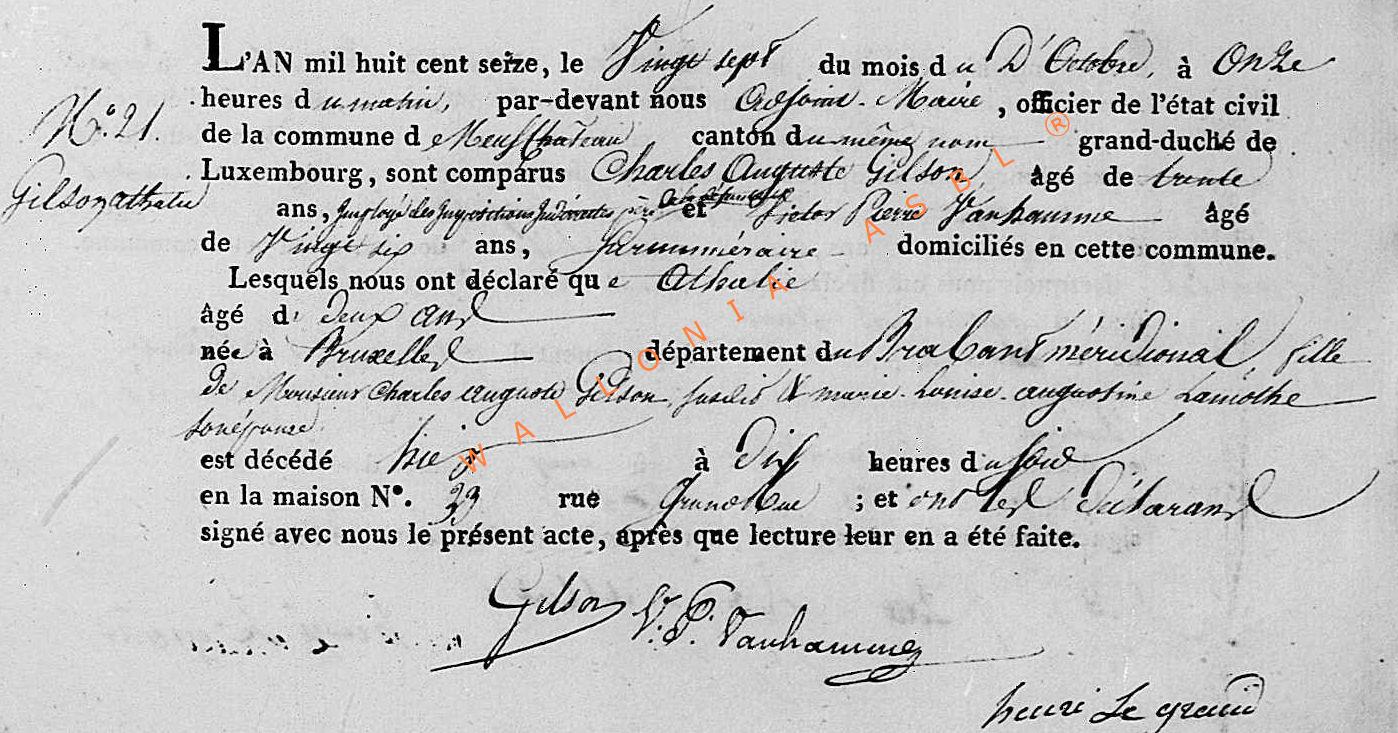 L'AN mil huit cent seize, le Vingt sept du mois d u D'Octobre, à Onze
heures d u matin, par-devant nous Adjoint-Maire, officier de l'état civil
N.° 21.
de la commune d e Neufchateau canton d u même nom grand-duché de
Luxembourg, sont comparus Charles Auguste Gilson, âgé de trente
Gilson athalie
ans, Employé des Impositions Indirectes père et Victor Pierre Vanhamme âgé
de Vingt six ans, Surnuméraire domiciliés en cette commune.
Lesquels nous ont déclaré qu e Athalie
âgé d e deux ans
née à Bruxelles département du Brabant méridional, fille
de Monsieur Charles auguste Gilson, susdit & marie Louise augustine Lamothe
son épouse
est décédé hier à dix heures d u soir
en la maison N°. 39 rue Grande Rue ; et ont les déclarans
signé avec nous le présent acte, après que lecture leur en a été faite.
Gilson V. P. Vanhamme
henri Le grand
WALLONIA ASBL ®